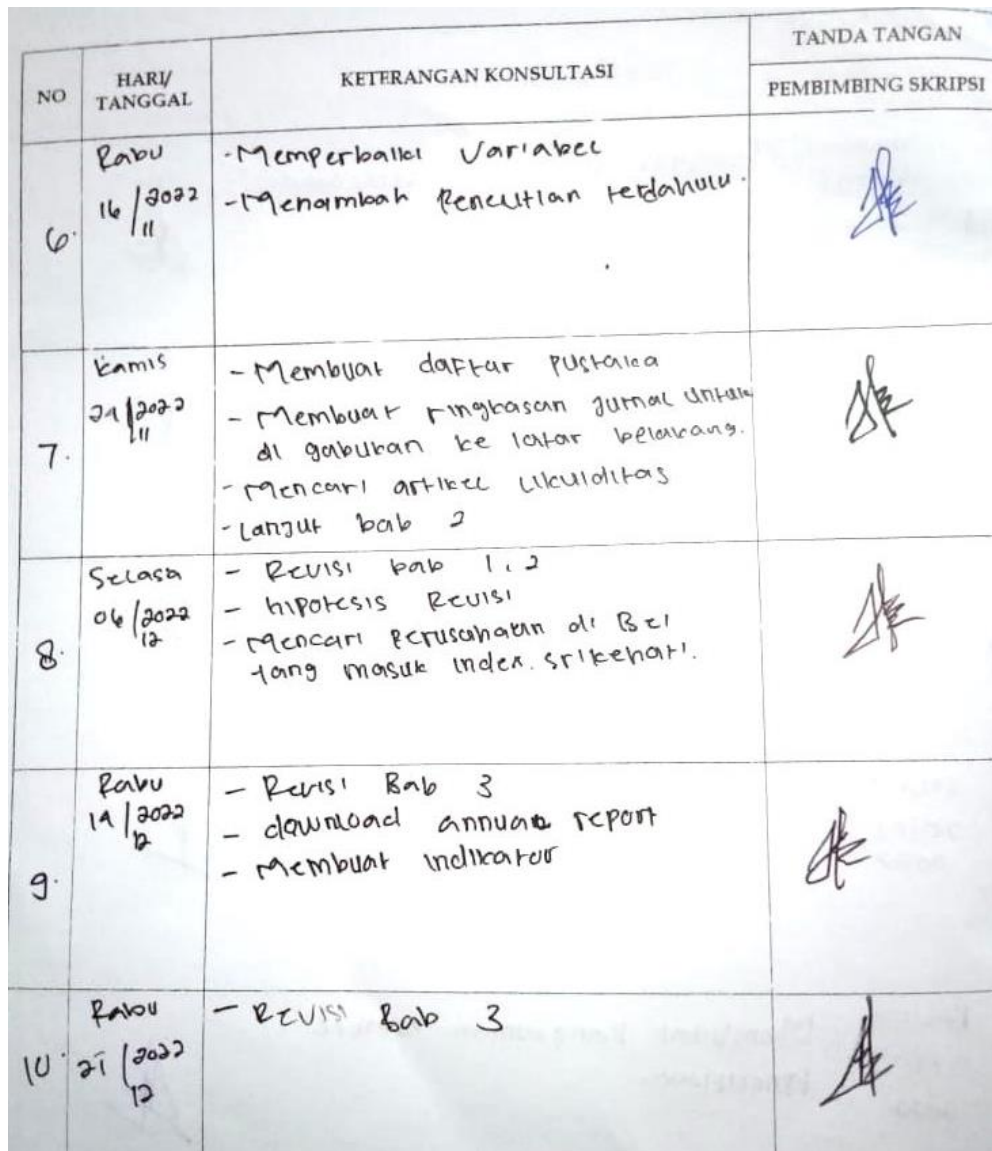 NO
HARI/
TANGGAL
KETERANGAN KONSULTASI
TANDA TANGAN
PEMBIMBING SKRIPSI
6.
Rabu
16/11 2022
- Memperbaiki Variabel
- Menambah Penelitian terdahulu.
7.
Kamis
24/11 2022
- Membuat daftar pustaka
- Membuat ringkasan jurnal untuk
di gabukan ke latar belakang.
- Mencari artikel likuiditas
- Lanjut bab 2
8.
Selasa
06/12 2022
- Revisi bab 1, 2
- hipotesis Revisi
- Mencari perusahaan di BEI
yang masuk index. srikehati.
9.
Rabu
14/12 2022
- Revisi Bab 3
- download annual report
- Membuat indikator
10.
Rabu
21/12 2022
- Revisi Bab 3